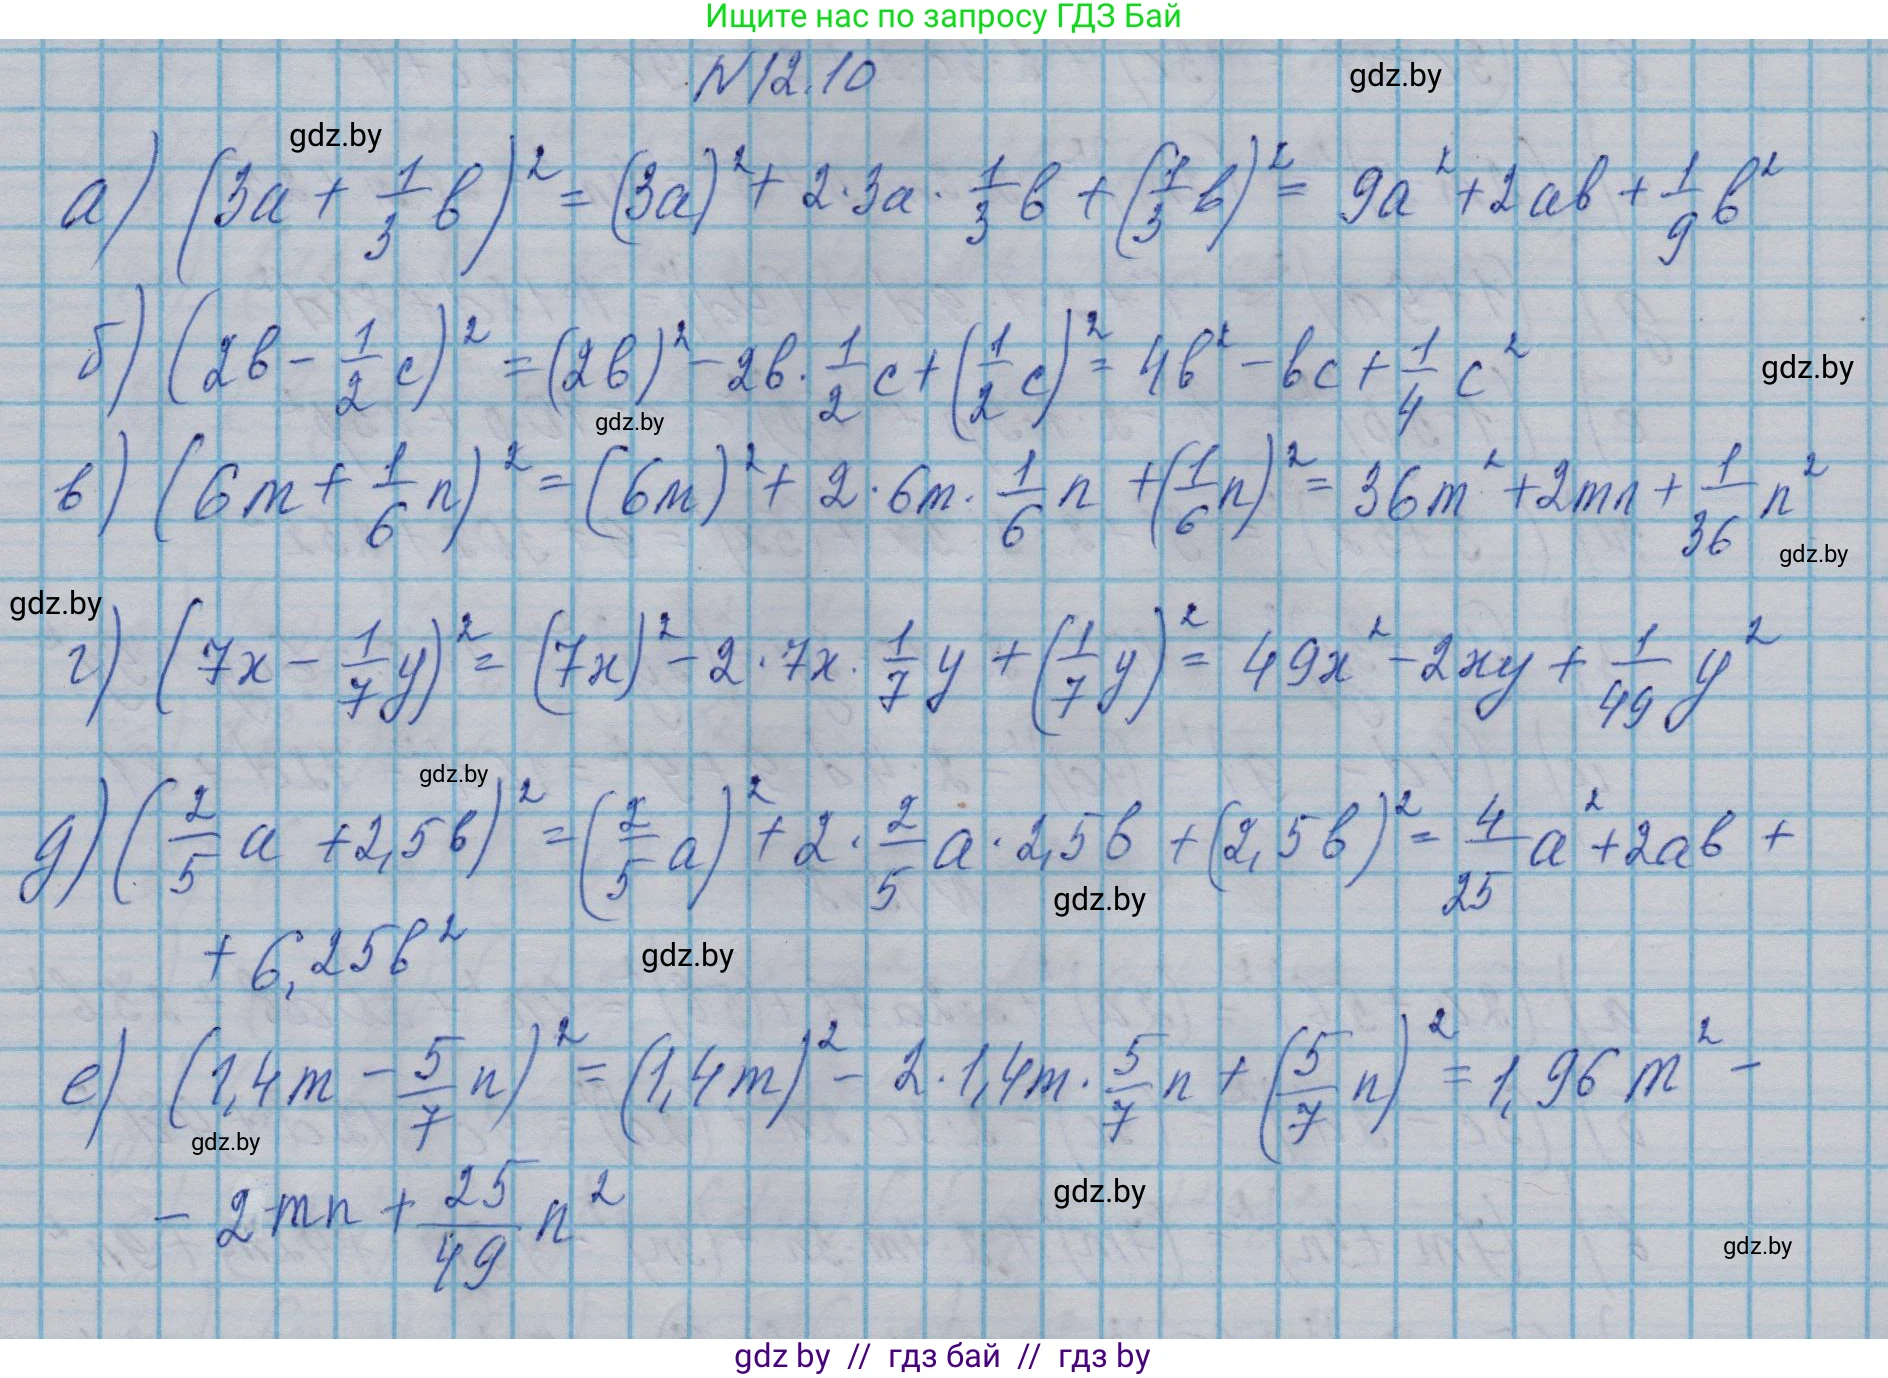 Ищите нас по запросу ГДЗ Бай
N12.10
gdz.by
gdz.by
а) (3a + 1/3 b)² = (3a)² + 2·3a·1/3 b + (1/3 b)² = 9a² + 2ab + 1/9 b²
б) (2b - 1/2 c)² = (2b)² - 2b·1/2 c + (1/2 c)² = 4b² - bc + 1/4 c²
gdz.by
gdz.by
в) (6m + 1/6 n)² = (6m)² + 2·6m·1/6 n + (1/6 n)² = 36m² + 2mn + 1/36 n²
gdz.by
gdz.by
г) (7x - 1/7 y)² = (7x)² - 2·7x·1/7 y + (1/7 y)² = 49x² - 2xy + 1/49 y²
gdz.by
д) (2/5 a + 2,5b)² = (2/5 a)² + 2·2/5 a·2,5b + (2,5b)² = 4/25 a² + 2ab +
gdz.by
+ 6,25b²
gdz.by
е) (1,4m - 5/7 n)² = (1,4m)² - 2·1,4m·5/7 n + (5/7 n)² = 1,96m² -
gdz.by
- 2mn + 25/49 n²
gdz.by
gdz.by
gdz by // гдз бай // гдз by